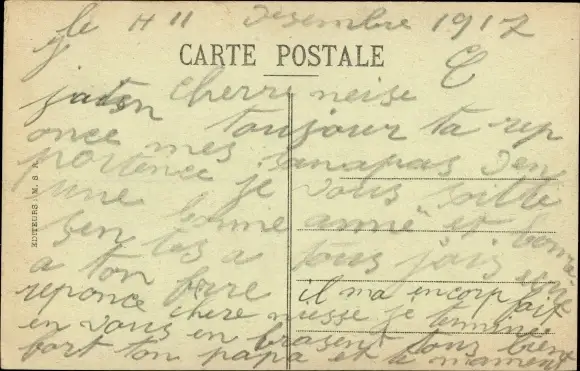 le 11 Desembre 1917
CARTE POSTALE
Cherre neise
jaten toujour ta rep
once mes sanapas d'en
portence je vous soitte
une bonne anné et bonne
sen tes a tous jais
a ton fere il ma encorp fait
reponce chere niesse je termine
en vous en brasent tous bien
fort ton papa et ta maman
EDITEURS M. S. R.